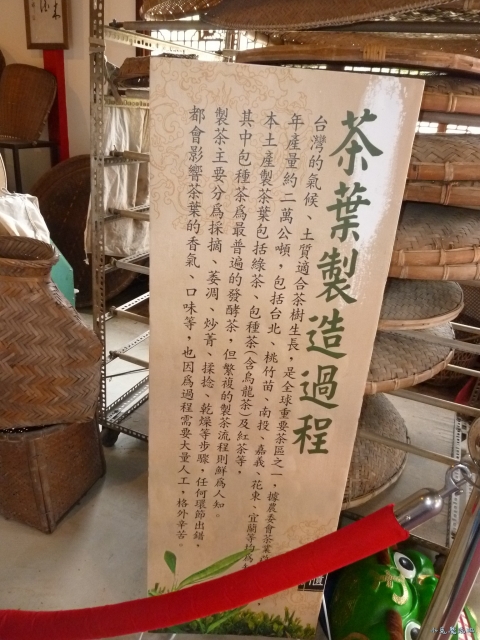 茶葉製造過程
台灣的氣候、土質適合茶樹生長，是全球重要茶區之一，據農委會茶業
年產量約二萬公噸，包括台北、桃竹苗、南投、嘉義、花東、宜蘭等
本土產製茶葉包括綠茶、包種茶(含烏龍茶)及紅茶等，
其中包種茶為最普遍的發酵茶，但繁複的製茶流程則鮮為人知。
製茶主要分為採摘、萎凋、炒菁、揉捻、乾燥等步驟，任何環節出錯，
都會影響茶葉的香氣、口味等，也因為過程需要大量人工，格外辛苦。